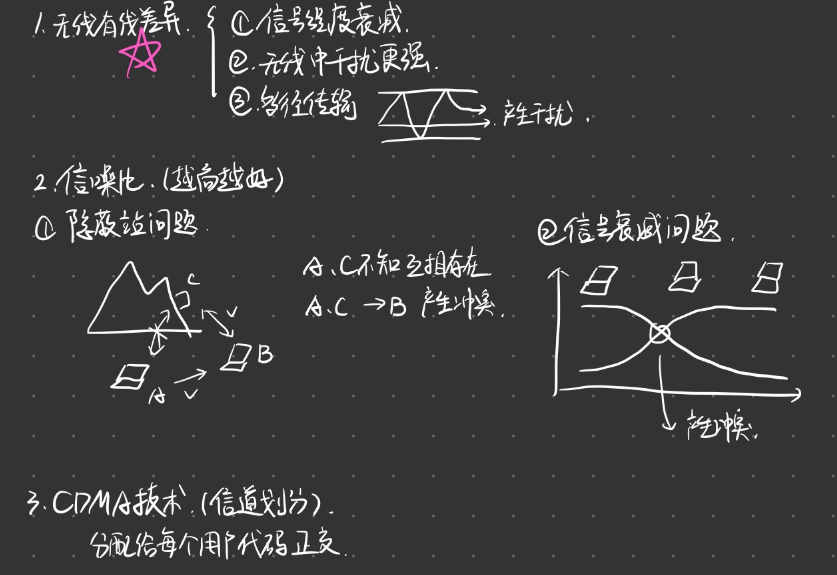 1. 无线有线差异. ① 信号强度衰减.
②. 无线中干扰更强.
③. 多径传输 产生干扰.
2. 信噪比. (越高越好)
① 隐蔽站问题.
②信号衰减问题.
A、C不知互相存在
A、C → B 产生冲突.
C
B
A
产生冲突.
3. CDMA技术. (信道划分).
分配给每个用户代码正交.